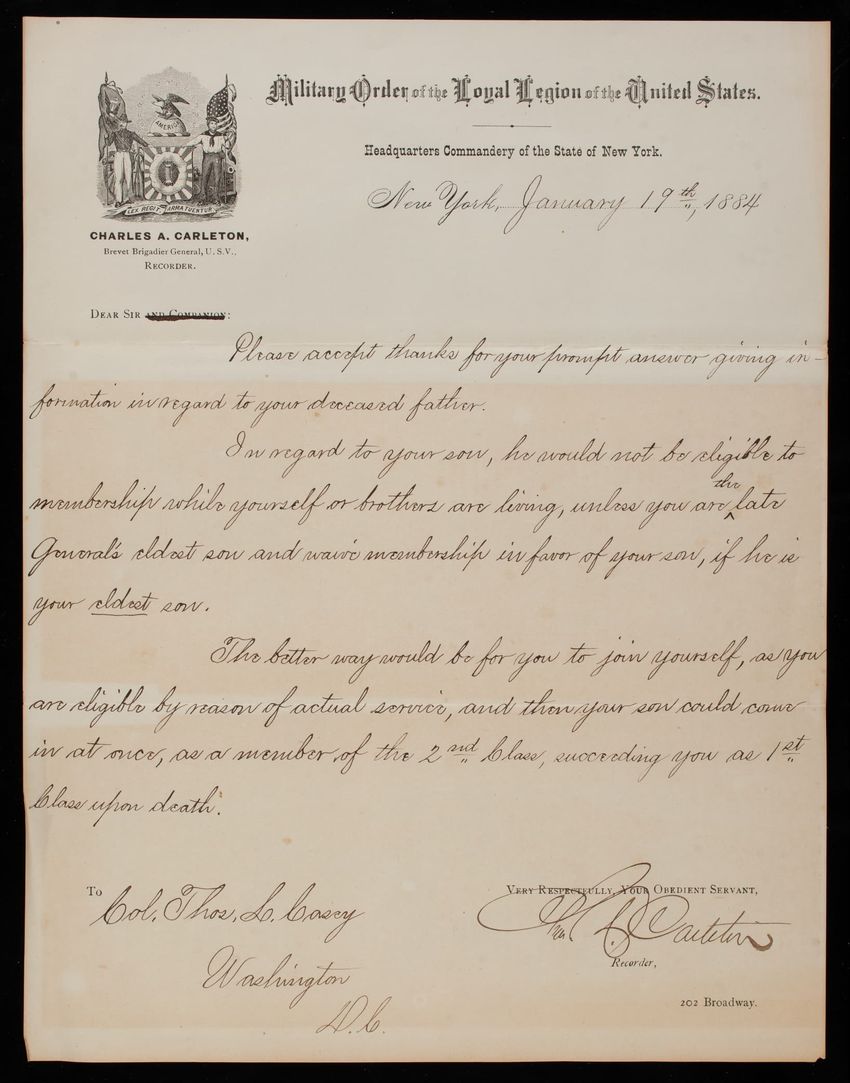 Military Order of the Loyal Legion of the United States.
Headquarters Commandery of the State of New York.
New York, January 19th, 1884
AMERICA
LEX REGIT ARMA TUENTUR
CHARLES A. CARLETON,
Brevet Brigadier General, U. S. V.,
RECORDER.
DEAR SIR AND COMPANION:
Please accept thanks for your prompt answer giving in-
formation in regard to your deceased father.
In regard to your son, he would not be eligible to
membership while yourself or brothers are living, unless you are the late
General's eldest son and waive membership in favor of your son, if he is
your eldest son.
The better way would be for you to join yourself, as you
are eligible by reason of actual service, and then your son could come
in at once, as a member of the 2nd Class, succeeding you as 1st
Class upon death.
To
Col. Thos. L. Casey
Washington
D.C.
VERY RESPECTFULLY, YOUR OBEDIENT SERVANT,
Chas A. Carleton
Recorder,
202 Broadway.